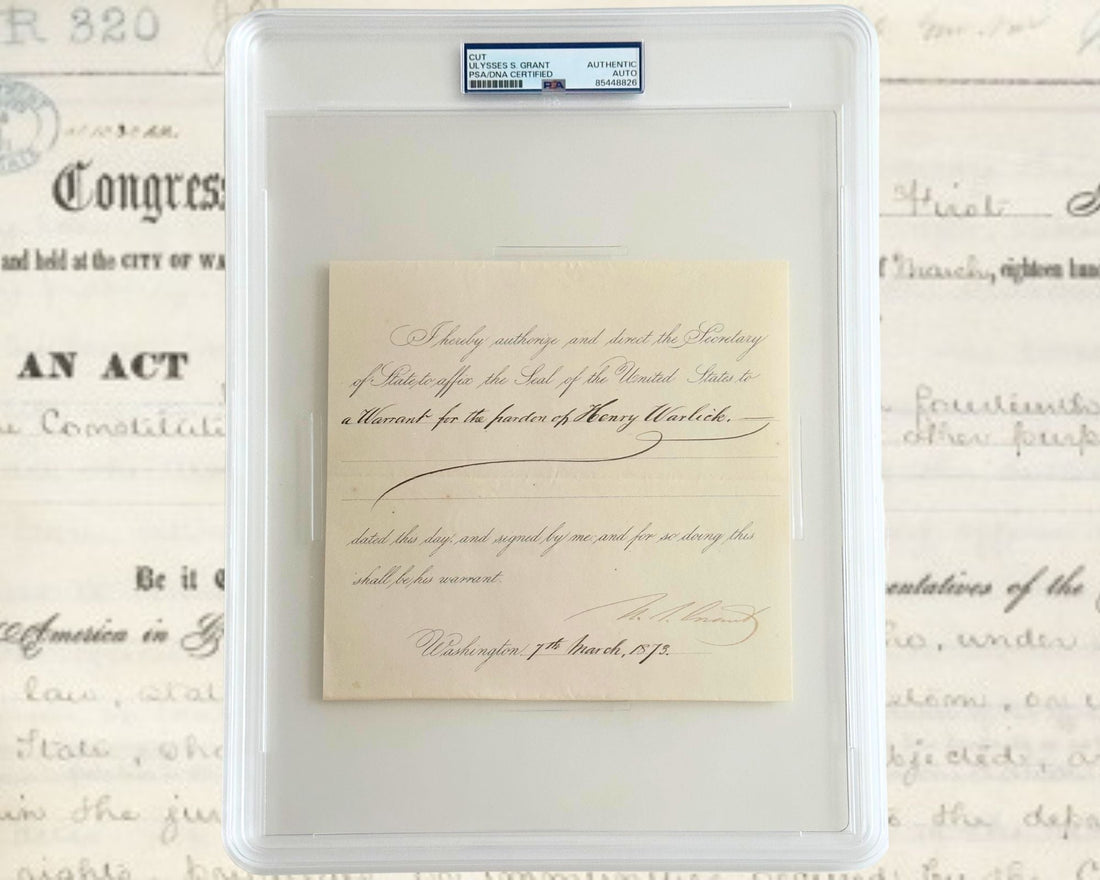 R 320
CUT
ULYSSES S. GRANT AUTHENTIC
PSA/DNA CERTIFIED AUTO
PSA 85448826
Congress First
and held at the CITY OF WA f March, eighteen hund
AN ACT
e Constituti Fourteenth
other purp
I hereby authorize and direct the Secretary
of State to affix the Seal of the United States to
a Warrant for the pardon of Henry Warlick.
dated this day, and signed by me; and for so doing this
shall be his warrant.
U. S. Grant
Washington, 7th March, 1873.
Be it entatives of the
America in under
law,
State, who bjected, a
in the jur the depa
rights,